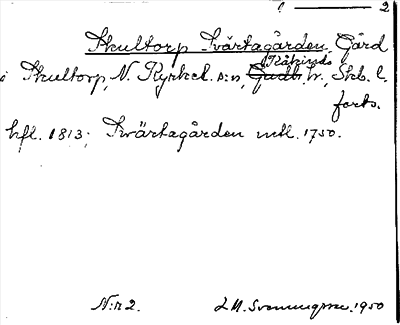 2
Skultorp Svärtagården, Gård
Kåkinds
i Skultorp, N. Kyrkek. s:n, Gudh. hr, Skb. l.
forts.
hfl. 1813; Svärtagården mtl. 1750.
N:r 2. L M. Svenungsson. 1950